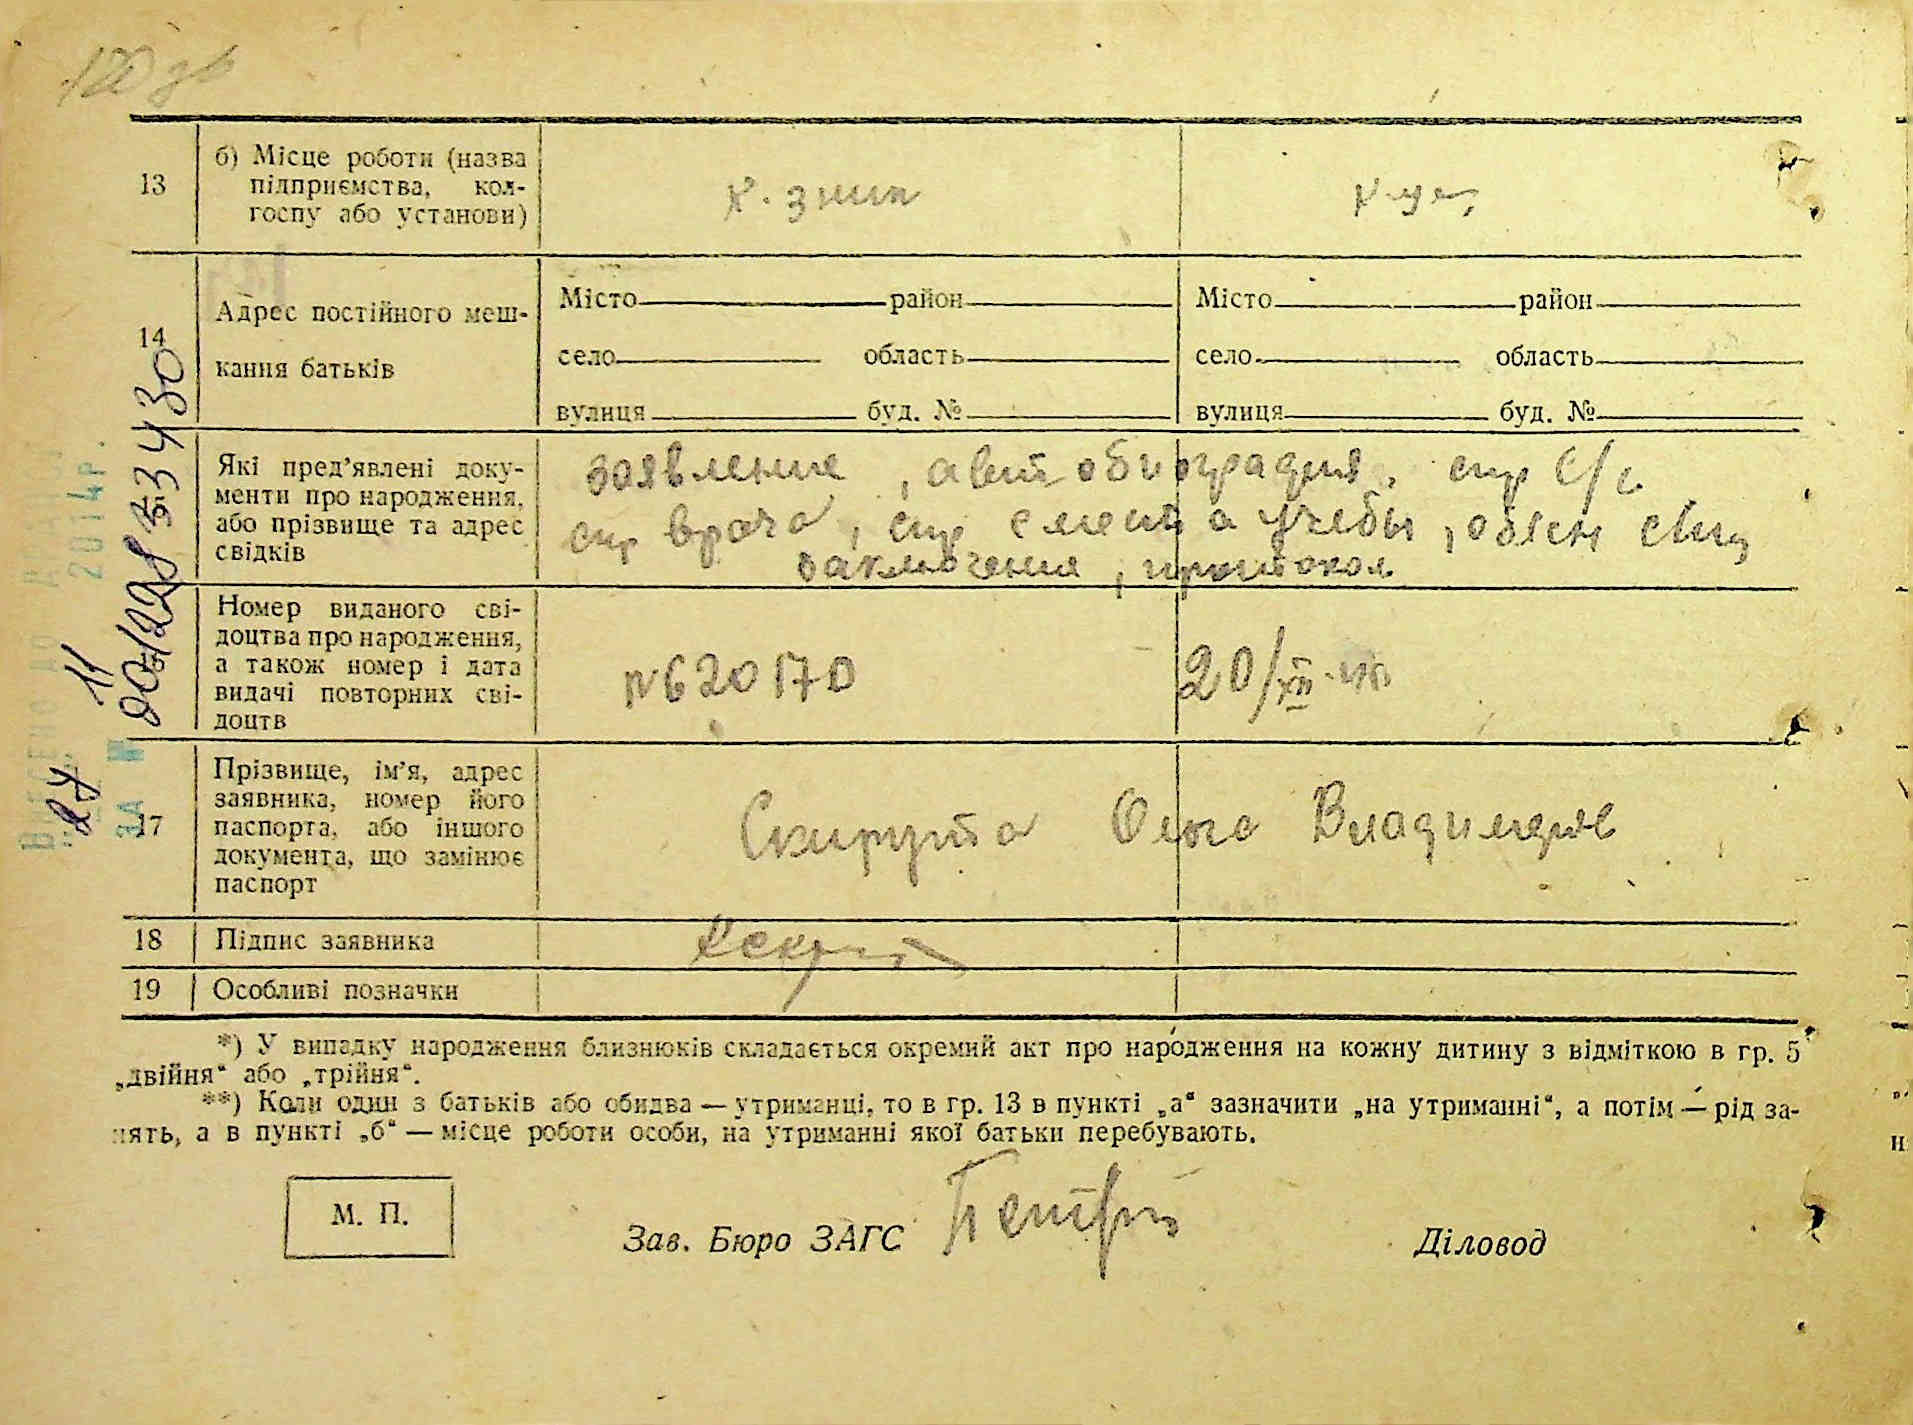 120 зв
13 б) Місце роботи (назва
підприємства, кол-
госпу або установи)
14 Адрес постійного меш-
кання батьків
Місто район Місто район
село область село область
вулиця буд. № вулиця буд. №
Які пред’явлені доку-
менти про народження,
або прізвище та адрес
свідків
заявление, автобиография, спр с/с
спр врача, спр с места учебы, объясн свид
заключения, протокол
Номер виданого сві-
доцтва про народження,
а також номер і дата
видачі повторних сві-
доцтв
№620170 20/XII
17 Прізвище, ім’я, адрес
заявника, номер його
паспорта, або іншого
документа, що замінює
паспорт
Скирута Ольга Владимиров
18 Підпис заявника
19 Особливі позначки
*) У випадку народження близнюків складається окремий акт про народження на кожну дитину з відміткою в гр. 5
„двійня“ або „трійня“.
**) Коли один з батьків або обидва — утриманці, то в гр. 13 в пункті „а“ зазначити „на утриманні“, а потім — рід за-
нять, а в пункті „б“ — місце роботи особи, на утриманні якої батьки перебувають.
М. П.
Зав. Бюро ЗАГС Діловод
2014р.
ЗА №
27 11
00122853430